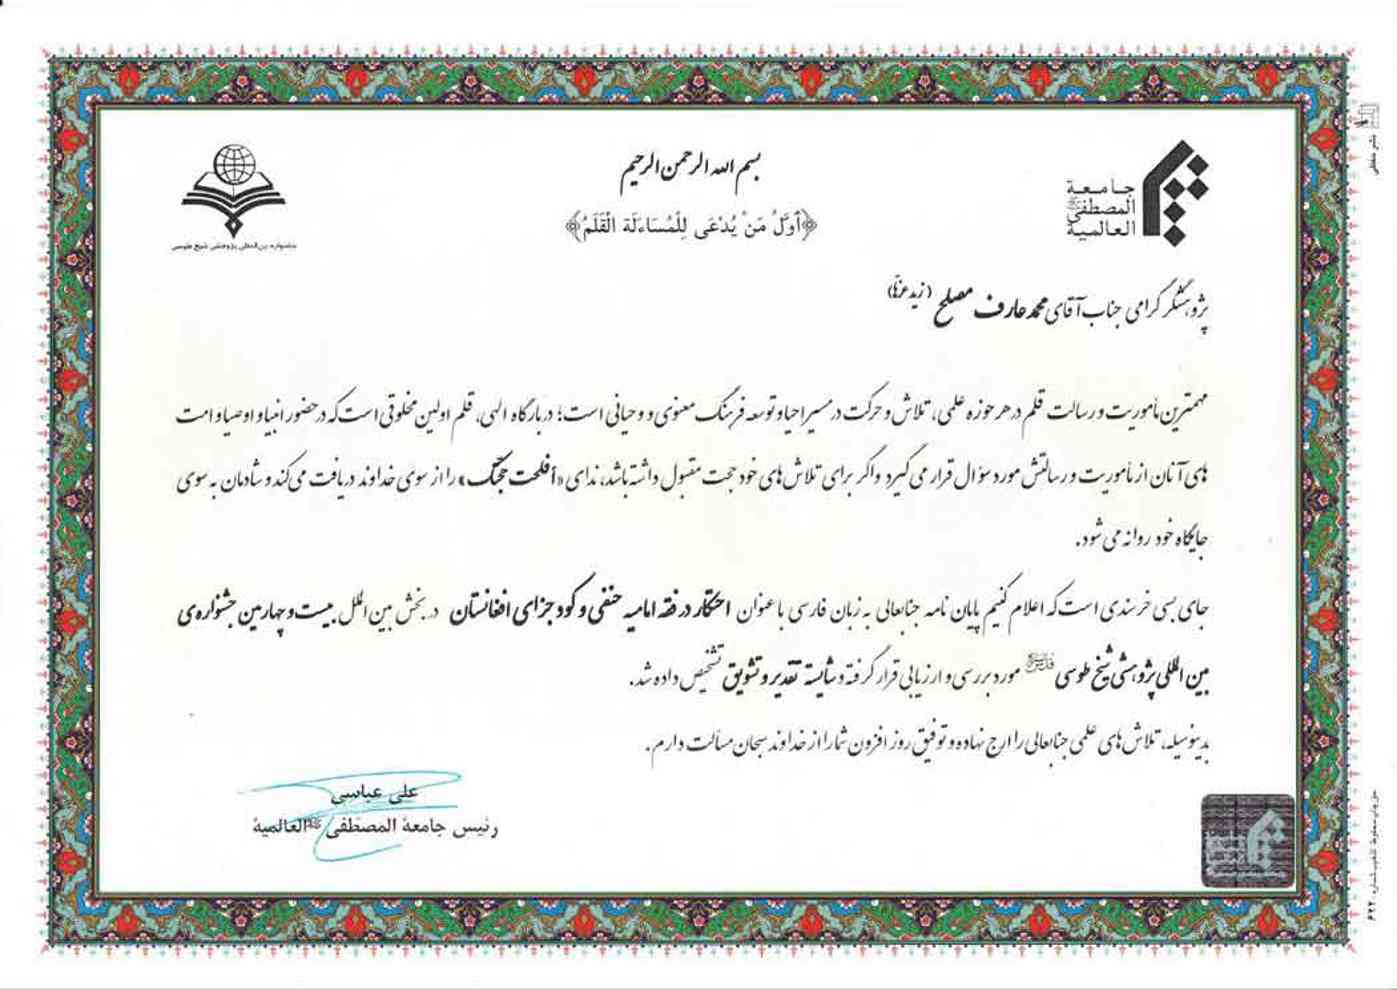 بسم الله الرحمن الرحیم
﴿أَوَّلُ مَنْ يُدْعَى لِلْمُسَاءَلَة الْقَلَمُ﴾
جامعة
المصطفی
العالمیة
جشنواره بین‌المللی پژوهشی شیخ طوسی
پژوهشگر گرامی جناب آقای محمد عارف مصلح (زید عزّه)
مهمترین مأموریت و رسالت قلم در هر حوزه علمی، تلاش و حرکت در مسیر احیا و توسعه فرهنگ معنوی و وحیانی است؛ در بارگاه الهی، قلم اولین مخلوقی است که در حضور انبیا و اوصیا و امت
های آنان از مأموریت و رسالتش مورد سؤال قرار می گیرد و اگر برای تلاش های خود حجت مقبول داشته باشد، ندای «أفلحت حجتک» را از سوی خداوند دریافت می کند و شادمان به سوی
جایگاه خود روانه می شود.
جای بسی خرسندی است که اعلام کنیم پایان نامه جنابعالی به زبان فارسی با عنوان احتکار در فقه امامیه حنفی و کود جزای افغانستان در بخش بین الملل بیست و چهارمین جشنواره‌ی
بین المللی پژوهشی شیخ طوسی مورد بررسی و ارزیابی قرار گرفته و شایسته تقدیر و تشویق تشخیص داده شد.
بدینوسیله، تلاش های علمی جنابعالی را ارج نهاده و توفیق روز افزون شما را از خداوند سبحان مسألت دارم.
علی عباسی
رئیس جامعة المصطفی العالمیة